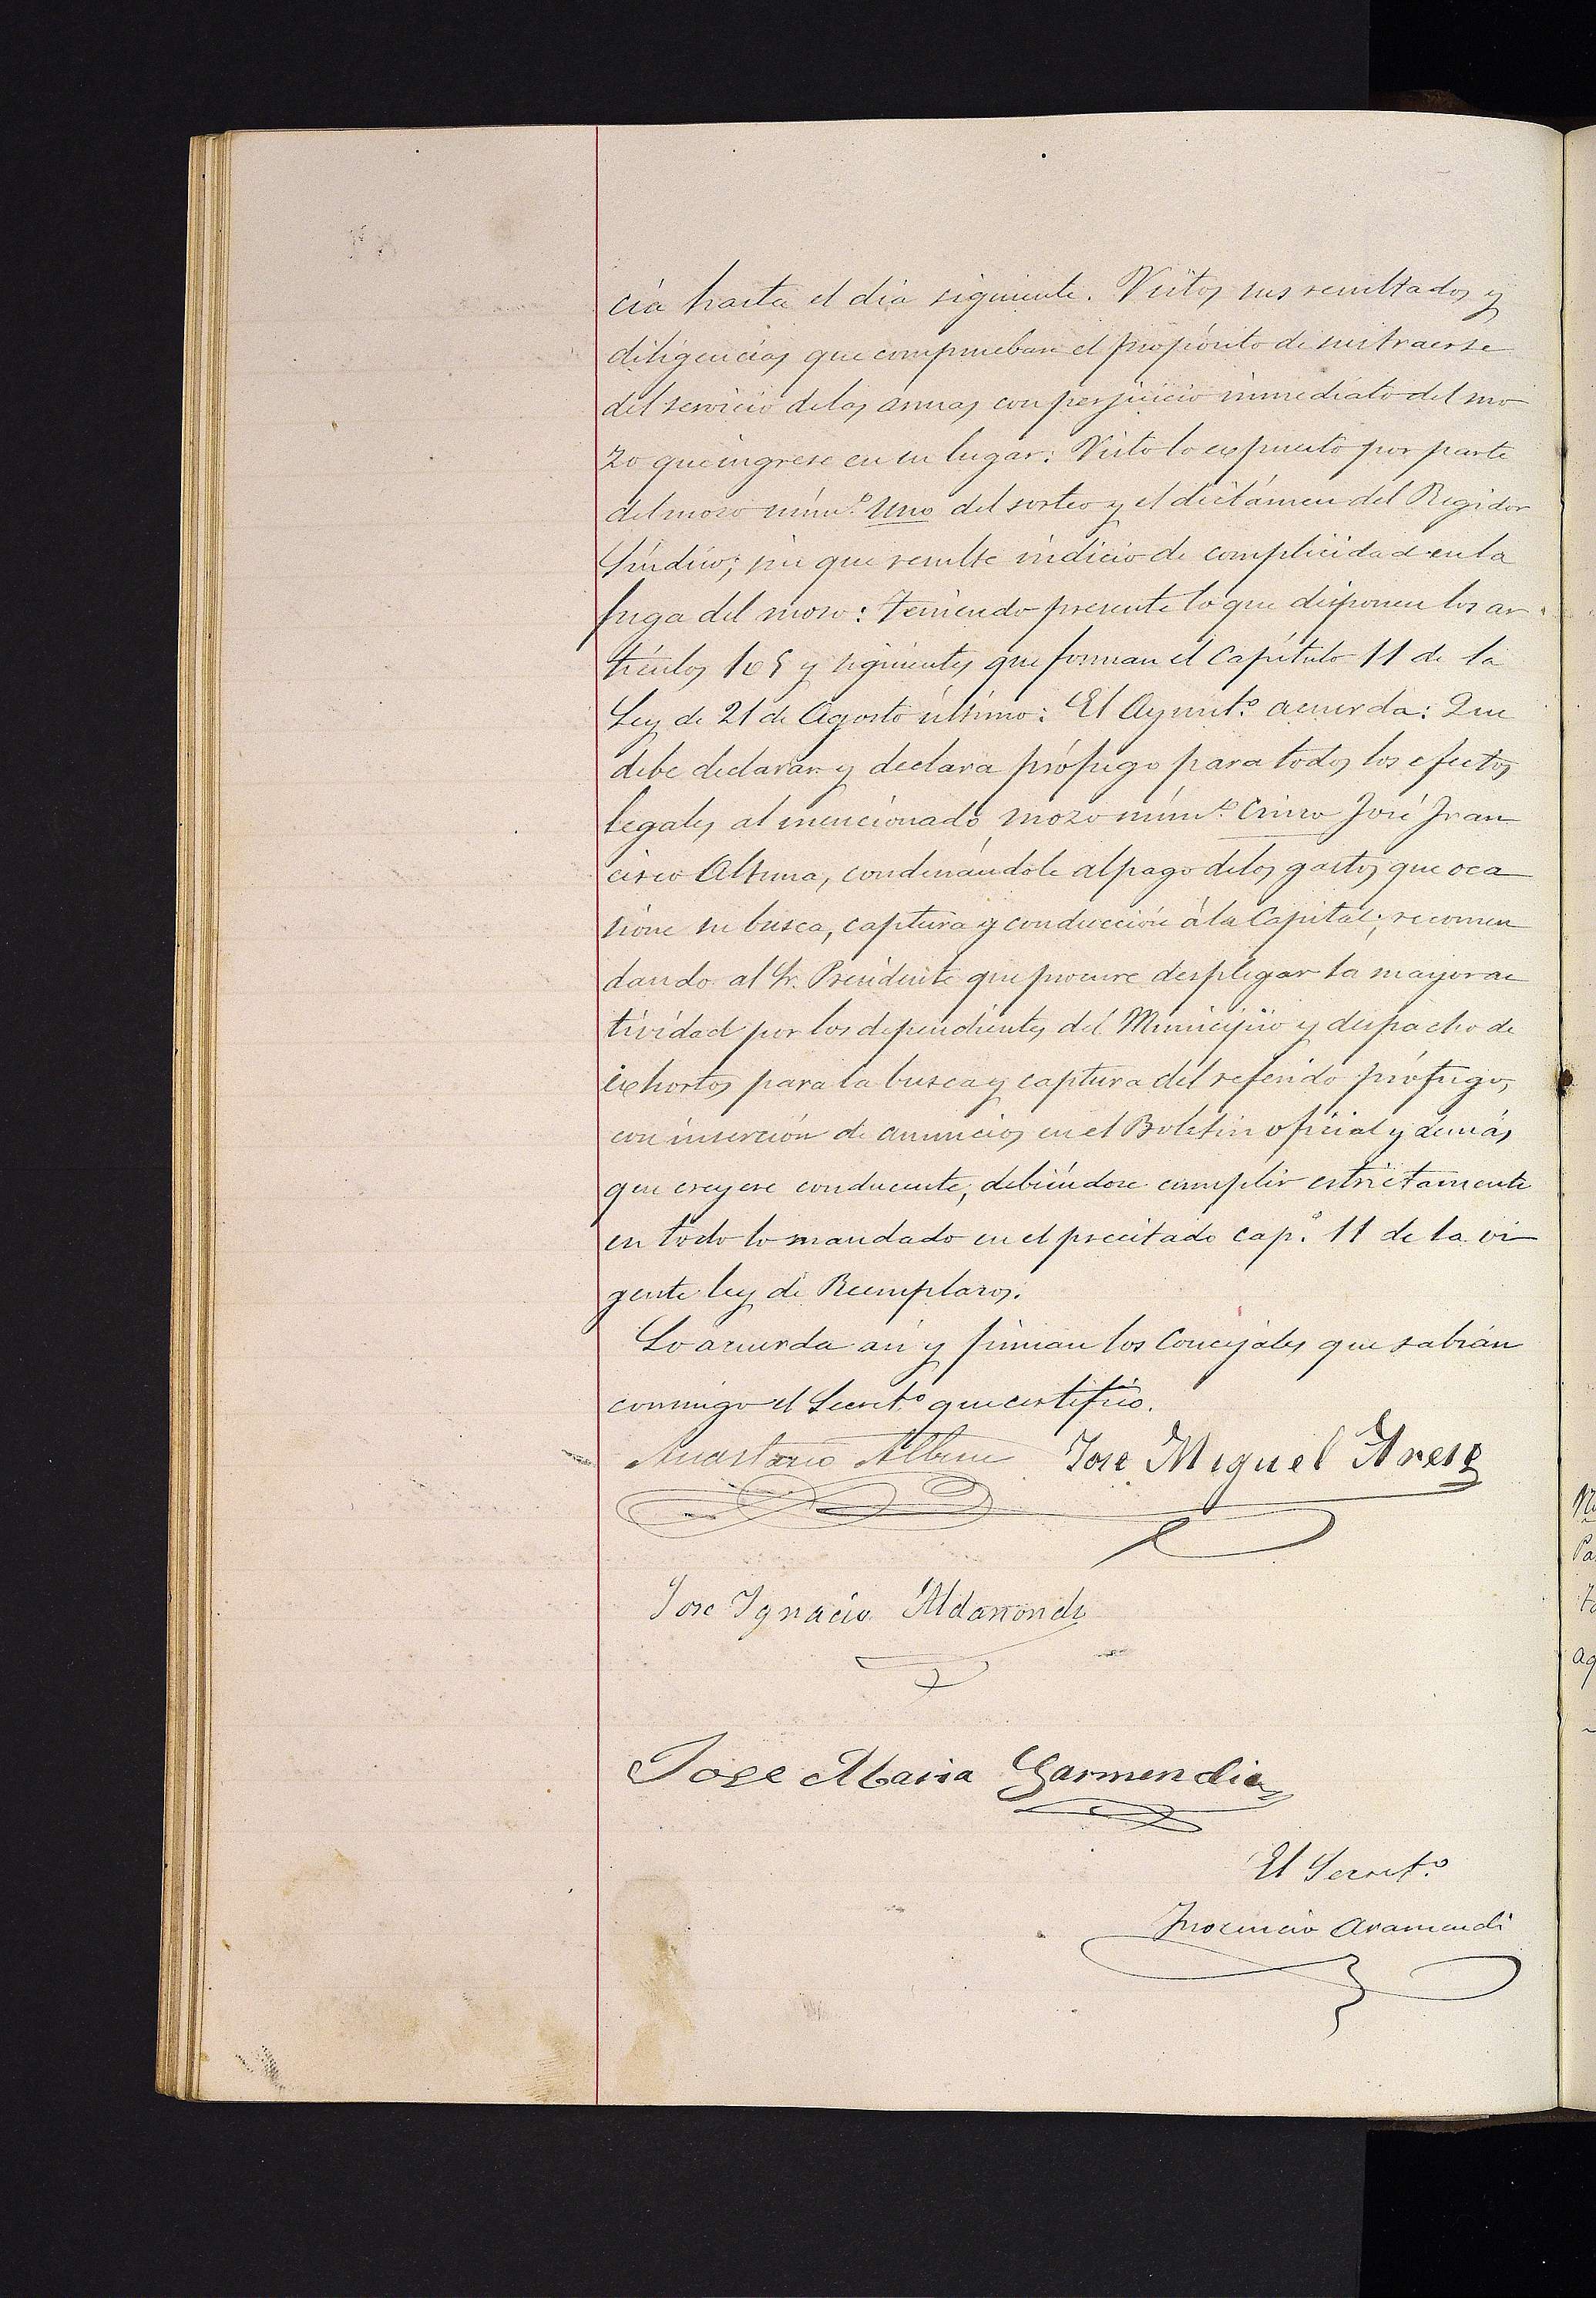 cia hasta el dia siguiente. Vistos sus resultados y
diligencias que comprueban el propósito de sustraerse
del servicio de las armas con perjuicio inmediato del mo
zo que ingrese en su lugar: Visto lo expuesto por parte
del mozo núm.º uno del sorteo y el dictámen del Regidor
Síndico; sin que resulte indicio de complicidad en la
fuga del mozo: Teniendo presente lo que disponen los ar-
tículos 105 y siguientes que forman el Capítulo 11 de la
Ley de 21 de Agosto último: El Ayunt.º acuerda: Que
debe declarar y declara prófugo para todos los efectos
legales al mencionado mozo núm.º Cinco José Fran
cisco Altuna, condenándole al pago de los gastos que oca
sione su busca, captura y conducción á la Capital; recomen
dando al Sr. Presidente que procure desplegar la mayor ac
tividad por los dependientes del Municipio y despacho de
exhortos para la busca y captura del referido prófugo,
con inserción de anuncios en el Boletin oficial y demás
que creyere conducente, debiéndose cumplir estrictamente
en todo lo mandado en el precitado cap.º 11 de la vi
gente ley de Reemplazos.
Lo acuerda así y firman los Concejales que sabian
conmigo el Secret.º que certifico.
Anastasio Jose Miguel
Jose Ignacio Aldanondo
Jose Maria Garmendia
El Secret.º
Inocencio Aramendi